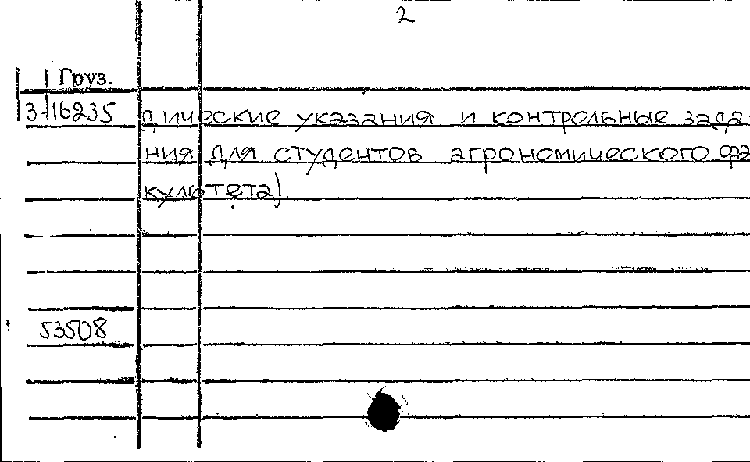 2
Груз.
3-16235 дические указания и контрольные зада-
ния для студентов агрономического фа-
культета)
53508